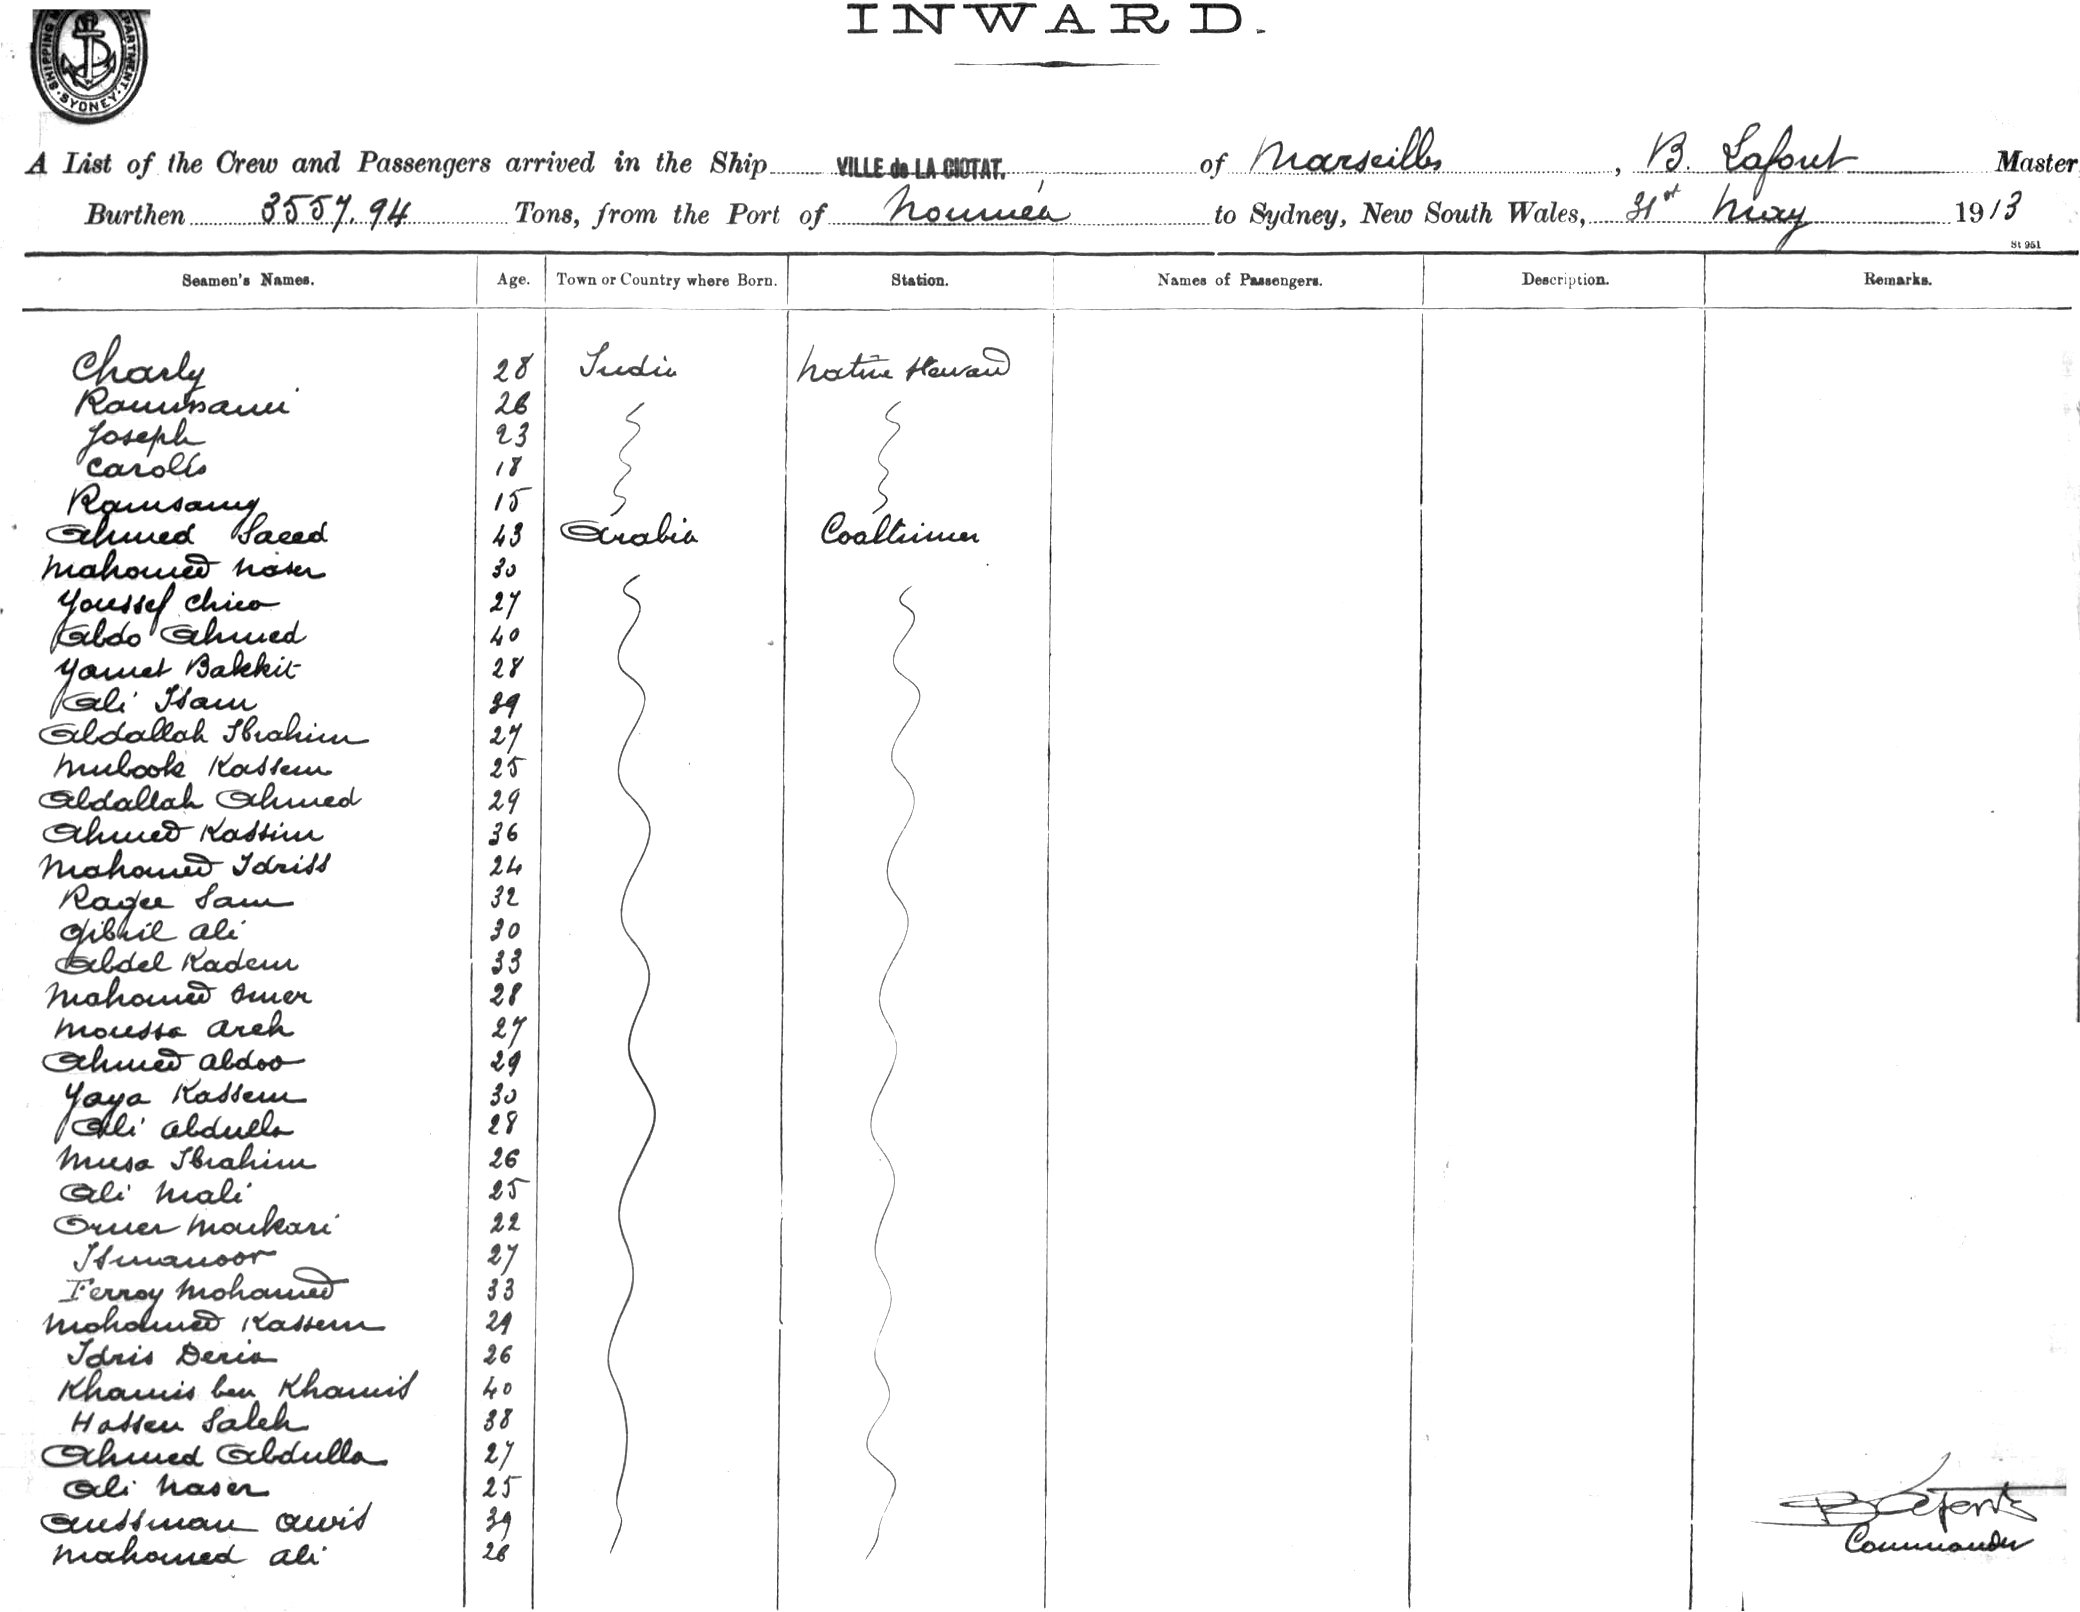 INWARD.
SHIPPING DEPARTMENT. SYDNEY
A List of the Crew and Passengers arrived in the Ship VILLE de LA CIOTAT. of Marseilles, B. Lafont Master
Burthen 3557.94 Tons, from the Port of Nouméa to Sydney, New South Wales, 31st May 1913
St 951
Seamen's Names. Age. Town or Country where Born. Station. Names of Passengers. Description. Remarks.
Charly 28 India Native Steward
Ramsami 26
Joseph 23
Carolis 18
Ramsamy 15
Ahmed Saeed 43 Arabia Coaltrimer
Mahomed Naser 30
Youssef 27
Abdo Ahmed 40
Yamet Bakkit 28
Ali Isam 39
Abdallah Ibrahim 27
Mubook Kassem 25
Abdallah Ahmed 29
Ahmed Kassim 36
Mahomed Idriss 24
Ragee Sam 32
Gibril Ali 30
Abdel Kadem 33
Mahomed Omer 28
Moussa Areh 27
Ahmed Abdoo 29
Yaya Kassem 30
Ali Abdulla 28
Musa Ibrahim 26
Ali Mali 25
Omer Moukari 22
Ismanoor 27
Ferroy Mohamed 33
Mohamed Kassem 29
Idris Deria 26
Khamis ben Khamis 40
Hassen Saleh 38
Ahmed Abdulla 27
Ali Naser 25
Aussman Awis 39
Mahomed Ali 26
B Lafont
Commander